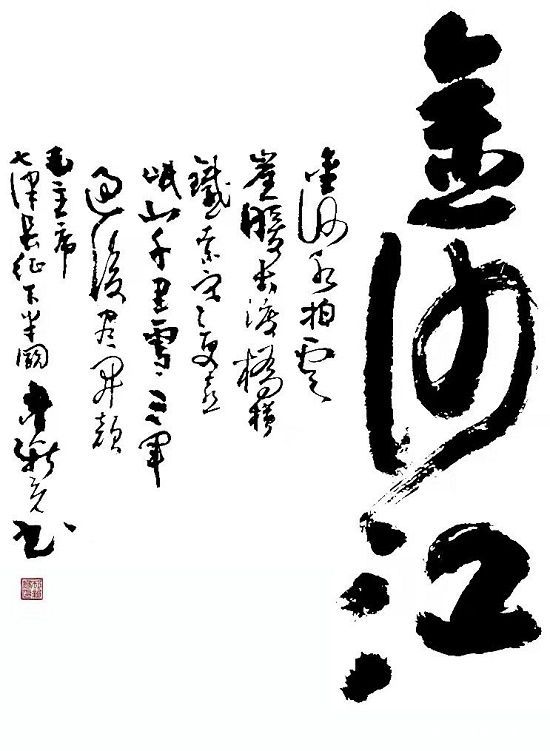 金沙江
金沙水拍雲
崖暖大渡橋橫
鐵索寒更喜
岷山千里雪三軍
過後盡開顏
毛主席
七律長征下半闋 書